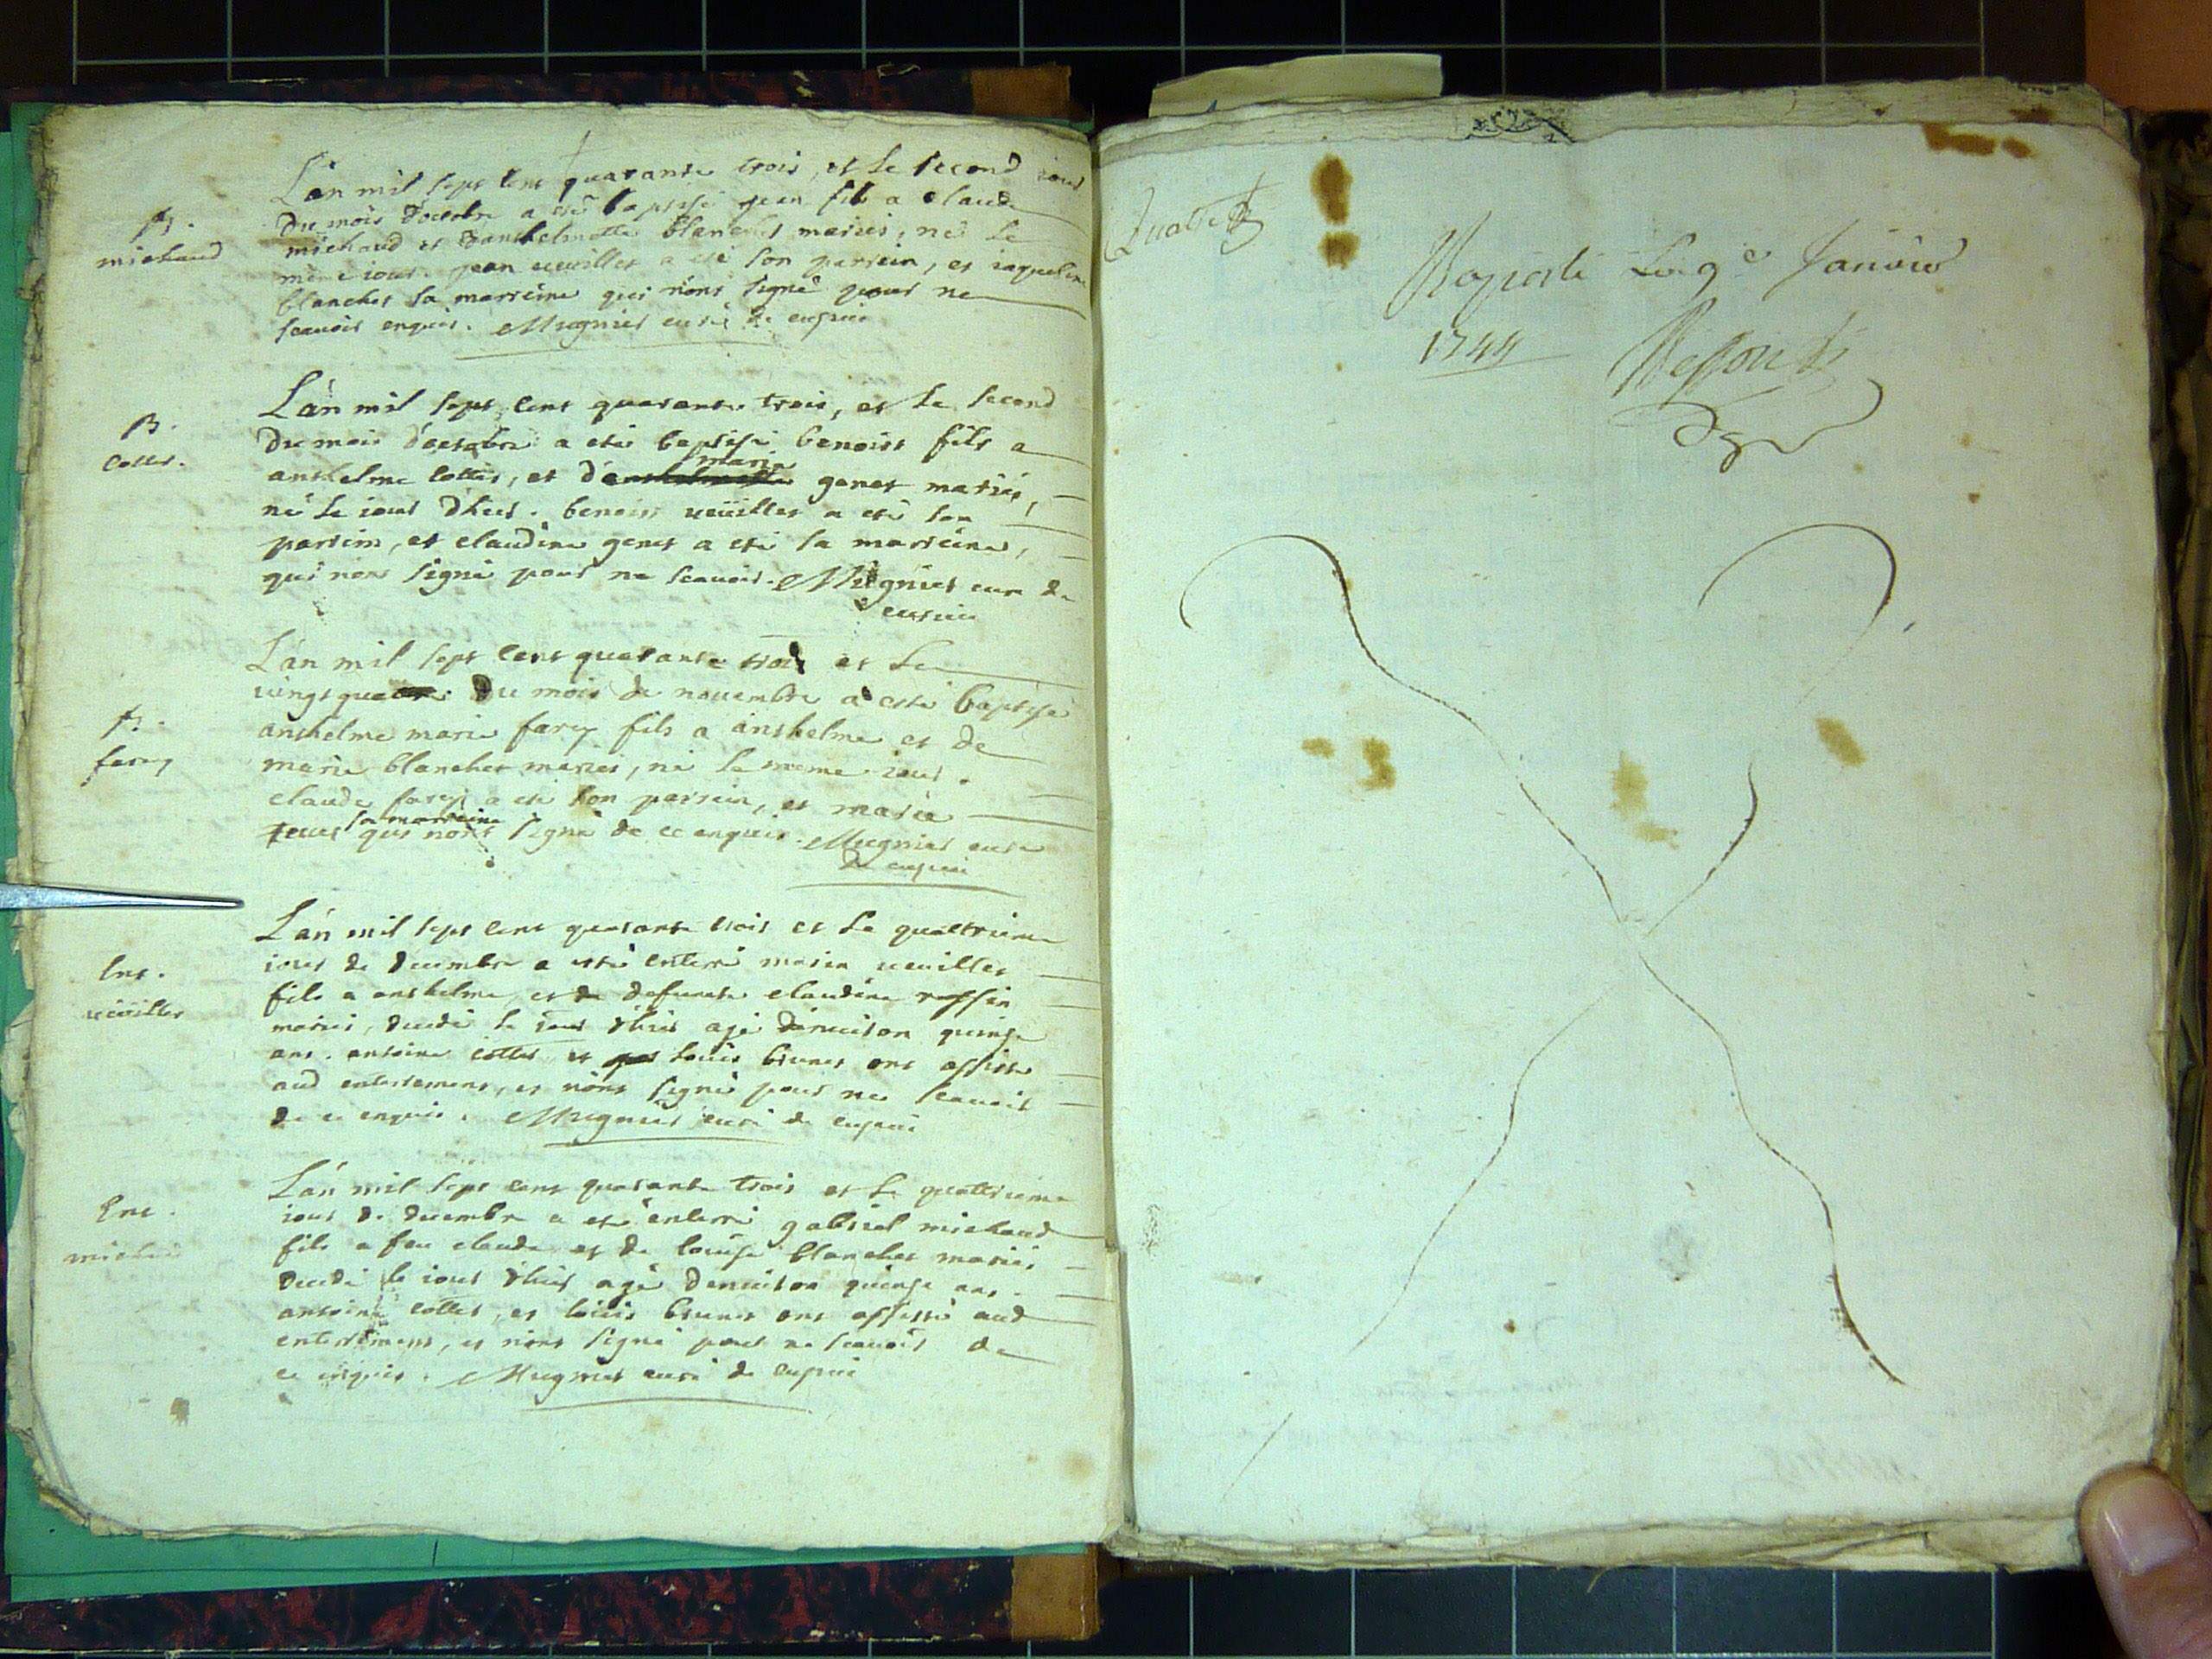 L'an mil sept cent quarante trois, et le second jour
B.
michaud
du mois d'octobre a esté baptisé jean fils a claude
michaud et d'anthelmette blanchet mariés, né le
même jour. jean veuillet a eté son parrein, et jaqueline
blanchet sa marreine qui n'ont signé pour ne
scavoir enquis. Mugnier curé de
L'an mil sept cent quarante trois, et le second
B.
Cottet.
du mois d'octobre a eté baptisé benoist fils a
anthelme Cottet, et d'anthelmette marie genet mariés,
né le jour d'hier. benoist veüillet a eté son
parrein, et claudine genet a eté sa marreine,
qui n'ont signé pour ne scavoir. Mugnier curé de
L'an mil sept cent quarante trois et le
vingt quatre du mois de novembre a esté baptisé
B.
farey
anthelme marie farey fils a anthelme et de
marie blanchet mariés, né le meme jour.
claude farey a eté son parrein, et marie
sa marreine
qui n'ont signé de ce enquis. Mugnier curé
L'an mil sept cent quarante trois et le quattrieme
Ent.
veüillet
jour de decembre a esté enterré marin veuillet
fils a anthelme, et de defuncte claudine
mariés, decedé le jour d'hier agé denviron quinze
ans. antoine cottet et louis brunet ont assisté
aud enterrement, et n'ont signé pour ne scavoir
de ce enquis. Mugnier curé de
L'an mil sept cent quarante trois et le quattrieme
Ent.
michaud
jour de decembre a eté enterré gabriel michaud
fils a feu claude et de louise blanchet mariés
decedé le jour d'hier agé denviron quinze ans.
antoine cottet, et louis brunet ont assisté aud
enterrement, et n'ont signé pour ne scavoir de
ce enquis. Mugnier curé de
Janvier
1744